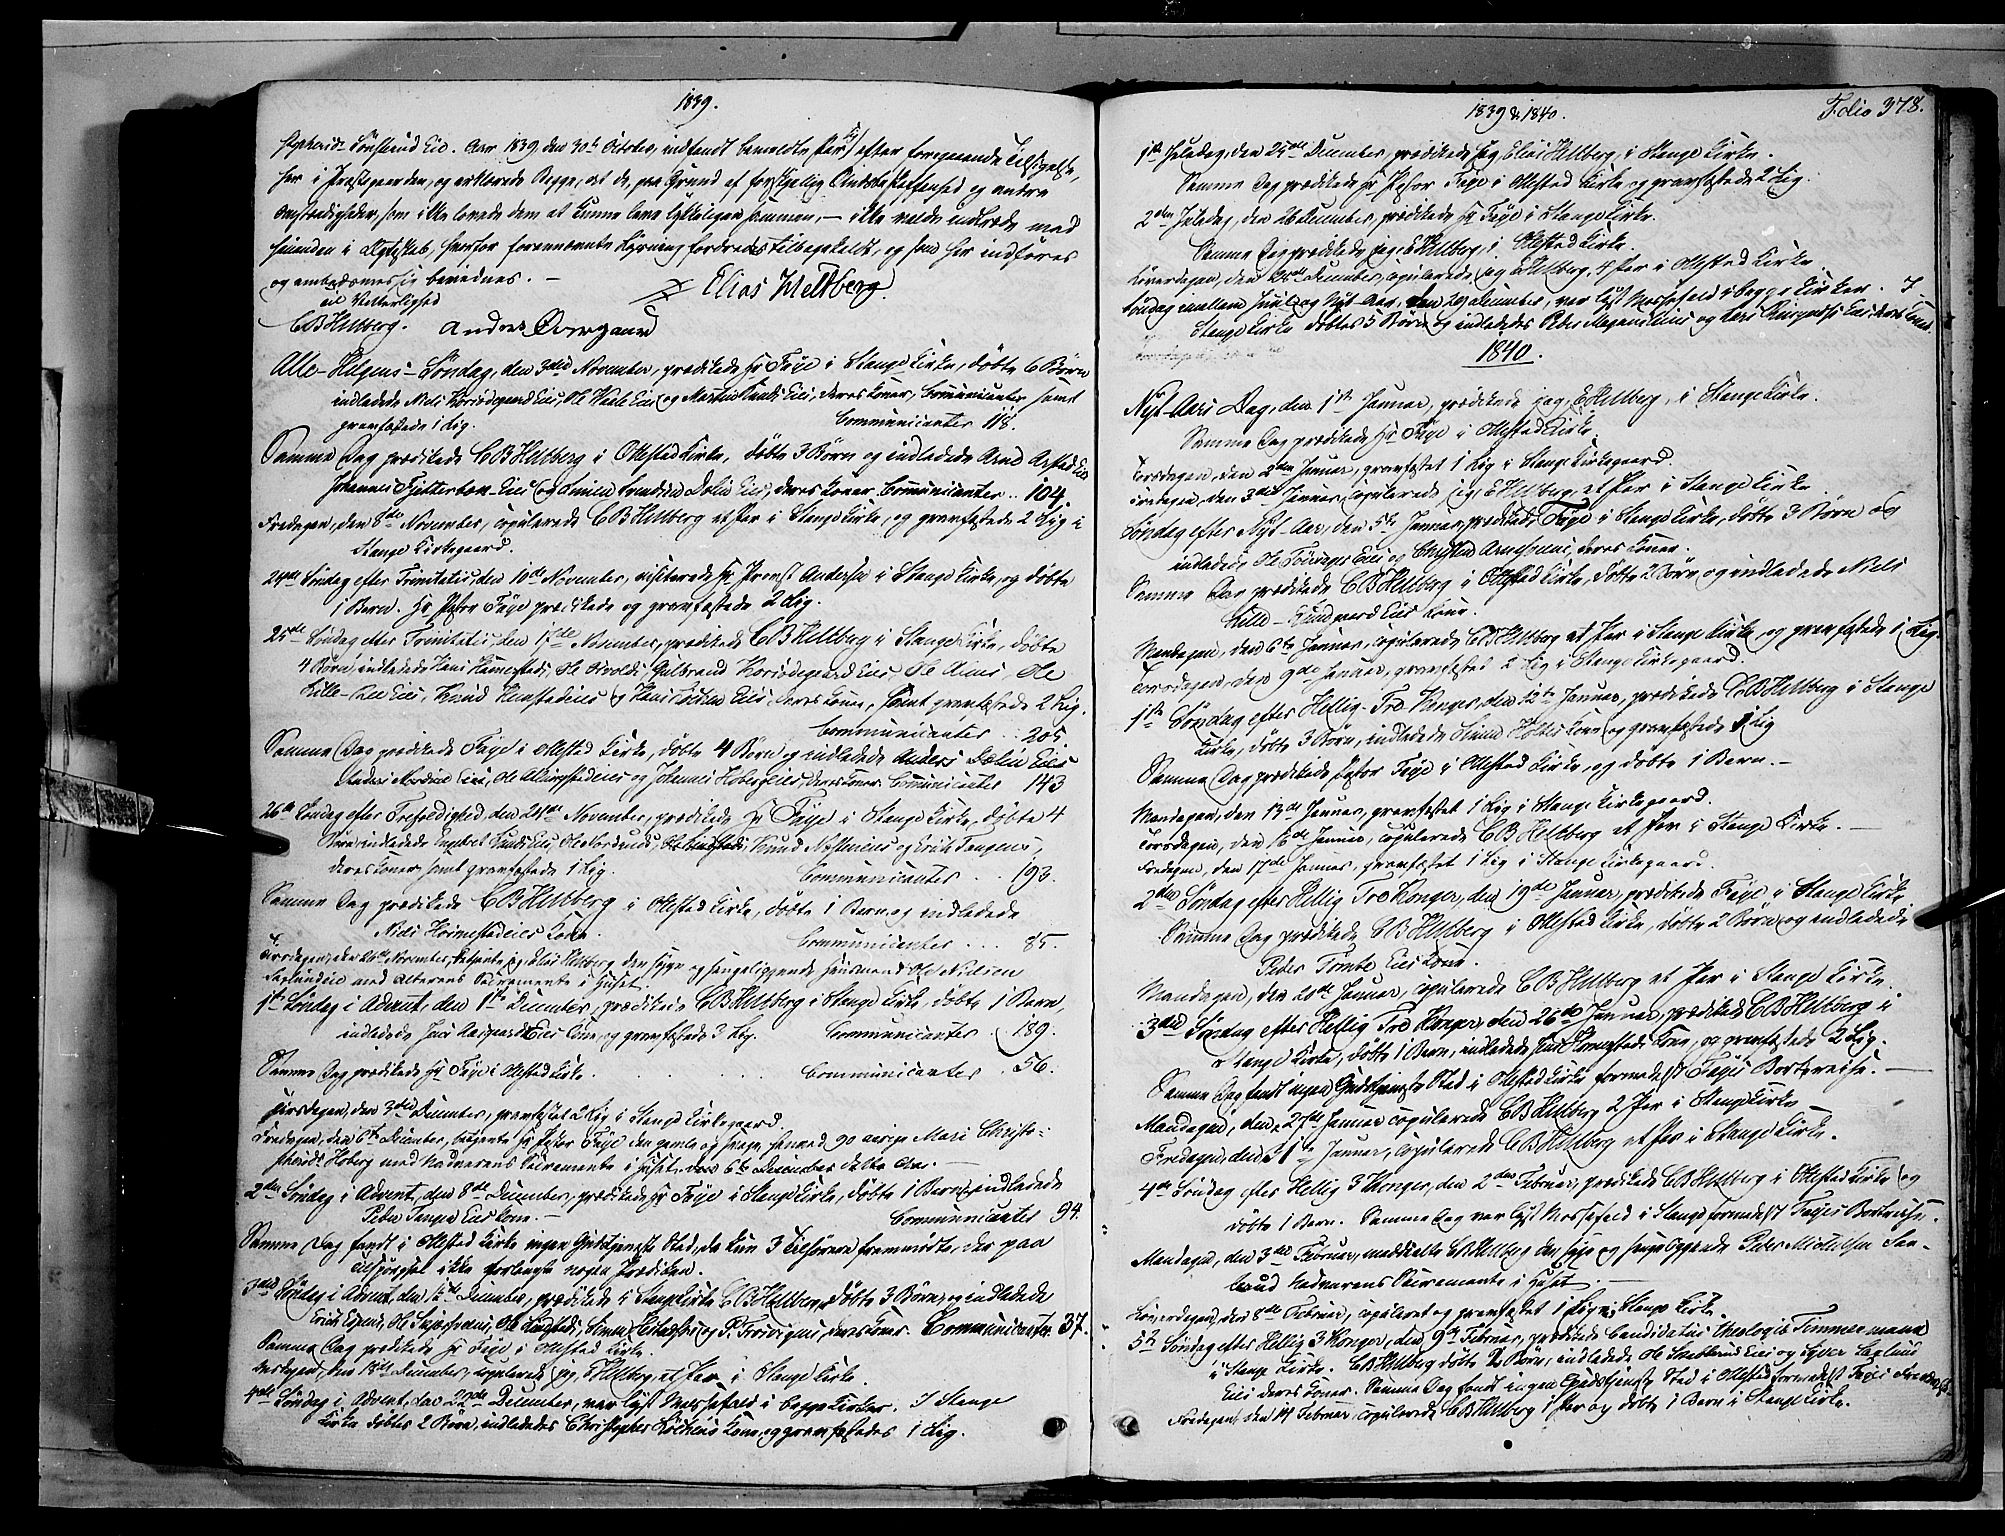 1839.
Sønsteud Eie. Aar 1839 den 30te October, indfandt bemeldte Par sig efter foregaaende Tilsigelse,
her i Præstegaarden, og erklærede Begge, at de, paa Grund af forskjellig og andre
Omstændigheder, som ikke lovede dem at kunne leve lykkeligen sammen, – ikke vilde indtræde med
hinanden i Ægteskab, hvorfor forannævnte Lysning fordredes tilbagekaldt, og som her indføres
og embedsmæssig bevidnes. –
til Vitterlighed Elias Heltberg.
CB Heltberg. Andrea Overgaard
Alle-Helgens-Søndag, den 3die November, prædikede Hr Faye i Stange Kirke, døbte 6 Børn
indledede Niels Korsødegaard Eies, Ole Eies og Martin Eies, deres Koner, Communicanter samt
gravfæstede 1 Lig. Communicanter 118.
Samme Dag prædikede CB Heltberg i Ottestad Kirke, døbte 3 Børn og indledede Arne Arstad Eies
Johannes Fjetterbæk Eies og Svendsen Dælin Eies, deres Koner. Communicanter .. 104.
Fredagen, den 8de November, copulerede CB Heltberg et Par i Stange Kirke, og gravfæstede 2 Lig i
Stange Kirkegaard.
24de Søndag efter Trinitatis, den 10de November, visiterede Hr Provst Andersen i Stange Kirke, og døbte
1 Barn. Hr Pastor Faye prædikede og gravfæstede 2 Lig.
25de Søndag efter Trinitatis, den 17de November, prædikede CB Heltberg i Stange Kirke, døbte
4 Børn, indledede Hans Ole Gulbrand Korsødegaard Eies, Ole Ole
Lille-Ree Eies, Knud og Hans Eies, deres Koner, samt gravfæstede 2 Lig.
Communicanter .. 205
Samme Dag prædikede Faye i Ottestad Kirke, døbte 4 Børn og indledede Anders Dælin Eies
Anders Eies, Ole og Johannes Hobergeies, deres Koner. Communicanter 143
26de Søndag efter Trefoldighed den 24de November, prædikede Hr Faye i Stange Kirke, døbte 4
Børn, indledede Engebret Eies, Ole Knud og Erik Tangens,
deres Koner samt gravfæstede 1 Lig. Communicanter . . 193.
Samme Dag prædikede CB Heltberg i Ottestad Kirke, døbte 1 Barn og indledede
Niels Hørnestadeies Kone. Communicanter . . . 85.
Torsdagen, den 28de November, betjente jeg Elias Heltberg den syge og sengeliggende Huusmand Ole Nielsen
med Alterens Sacramente i Huset.
1ste Søndag i Advent, den 1ste December, prædikede CB Heltberg i Stange Kirke, døbte 1 Barn,
indledede Eies Kone og gravfæstede 3 Lig. Communicanter . 189.
Samme Dag prædikede Hr Faye i Ottestad Kirke. Communicanter . 56.
Tirsdagen, den 3die December, gravfæstet 2 Lig i Stange Kirkegaard.
Fredagen, den 6te December, betjente Hr Pastor Faye den gamle og svage, henved 90 aarige Mari Christo=
phersdt. Hoberg med Nadverens Sacramente i Huset, den 6te December dette Aar. –
2den Søndag i Advent, den 8de December, prædikede Hr Faye i Stange Kirke, døbte 1 Barn, indledede
Peder Tangen Eies Kone. – Communicanter 94.
Samme Dag fandt i Ottestad Kirke ingen Gudstjeneste Sted, da kun 3 Tilhørere fremmødte, der paa
Tilspørgsel ikke forlangte nogen Prædiken.
3die Søndag i Advent, den 15de December, prædikede i Stange Kirke CB Heltberg, døbte 3 Børn og indledede
Erich Ole Ole Simen og P. deres Koner. Communicanter 37.
Samme Dag prædikede Hr Faye i Ottestad Kirke.
Onsdagen, den 18de December, copulerede jeg, E Heltberg, et Par i Stange Kirke.
4de Søndag i Advent, den 22de December, var lyst Messefald i begge Kirker. I Stange
Kirke døbtes 2 Børn, indledes Christopher Kone, og gravfæstedes 1 Lig.
1839 & 1840. Folio 378.
1ste Juledag, den 25de December, prædikede jeg Elias Heltberg, i Stange Kirke.
Samme Dag prædikede Hr Pastor Faye i Ottestad Kirke og gravfæstede 2 Lig.
2den Juledag, den 26 December, prædikede Hr Faye i Stange Kirke.
Samme Dag prædikede jeg, E Heltberg, i Ottestad Kirke.
Løverdagen, den 28de December, copulerede jeg E Heltberg, 4 Par i Ottestad Kirke.
Søndag emellem Juul og Nyt-Aar, den 29 December, var lyst Messefald i begge Kirker. I
Stange Kirke døbtes 5 Børn og indledes Peder Eies og Lars Eies deres Koner
1840.
Nyt-Aars Dag, den 1ste Januar, prædikede jeg, E Heltberg, i Stange Kirke.
Samme Dag prædikede Hr Faye i Ottestad Kirke.
Torsdagen, den 2den Januar, gravfæstet 1 Lig i Stange Kirkegaard.
Fredagen, den 3die Januar, copulerede jeg, E Heltberg, et Par i Stange Kirke.
Søndag efter Nyt-Aar, den 5te Januar, prædikede Faye i Stange Kirke, døbte 3 Børn og
indledede Ole Eies og Christen Arnesveens, deres Koner.
Samme Dag prædikede CB Heltberg i Ottestad Kirke, døbte 2 Børn og indledede Niels
Lille- Eies Kone.
Mandagen, den 6te Januar, copulerede CB Heltberg et Par i Stange Kirke, og gravfæstede 1 Lig.
Torsdagen, den 9de Januar, gravfæstet 2 Lig i Stange Kirkegaard.
1ste Søndag efter Hellig-Tre Konger, den 12te Januar, prædikede CB Heltberg i Stange
Kirke, døbte 3 Børn, indledede Kone og gravfæstede 1 Lig
Samme Dag prædikede Pastor Faye i Ottestad Kirke, og døbte 1 Barn. –
Mandagen, den 13de Januar, gravfæstet 1 Lig i Stange Kirkegaard.
Torsdagen, den 16de Januar, copulerede CB Heltberg et Par i Stange Kirke. –
Fredagen, den 17de Januar, gravfæstet 1 Lig i Stange Kirkegaard.
2den Søndag efter Hellig Tre Konger, den 19de Januar, prædikede Faye i Stange Kirke
Samme Dag prædikede CB Heltberg i Ottestad Kirke, døbte 2 Børn, og indledede
Peder Tomte Eies Kone.
Mandagen, den 20de Januar, copulerede CB Heltberg et Par i Stange Kirke.
3die Søndag efter Hellig Tre Konger, den 26de Januar, prædikede CB Heltberg i
Stange Kirke, døbte 1 Barn, indledede Kone, og gravfæstede 2 Lig.
Samme Dag fandt ingen Gudstjeneste Sted i Ottestad Kirke formedelst Fayes Bortreise. –
Mandagen, den 27de Januar copulerede CB Heltberg 2 Par i Stange Kirke –
Fredagen, den 31te Januar, copulerede CB Heltberg et Par i Stange Kirke.
4de Søndag efter Hellig 3 Konger, den 2den Februar, prædikede CB Heltberg i Ottestad Kirke og
døbte 1 Barn. Samme Dag var lyst Messefald i Stange formedelst Fayes Bortreise.
Mandagen, den 3die Februar, meddeelte CB Heltberg den syge og sengeliggende Peder Michelsen San-
Nadverens Sacramente i Huset. –
Løverdagen, den 8de Februar, copuleret og gravfæstet 1 Lig i Stange Kirke.
5te Søndag efter Hellig 3 Konger, den 9de Februar, prædikede Candidatus theologiæ Timmermann
i Stange Kirke. CB Heltberg døbte 2 Børn, indledede Ole Eies og Syver
Eies deres Koner. Samme Dag fandt ingen Gudstjeneste Sted i Ottestad formedelst Fayes
Fredagen, den 14 Februar, copulerede CB Heltberg 1 Par og døbte 1 Barn i Stange Kirke.